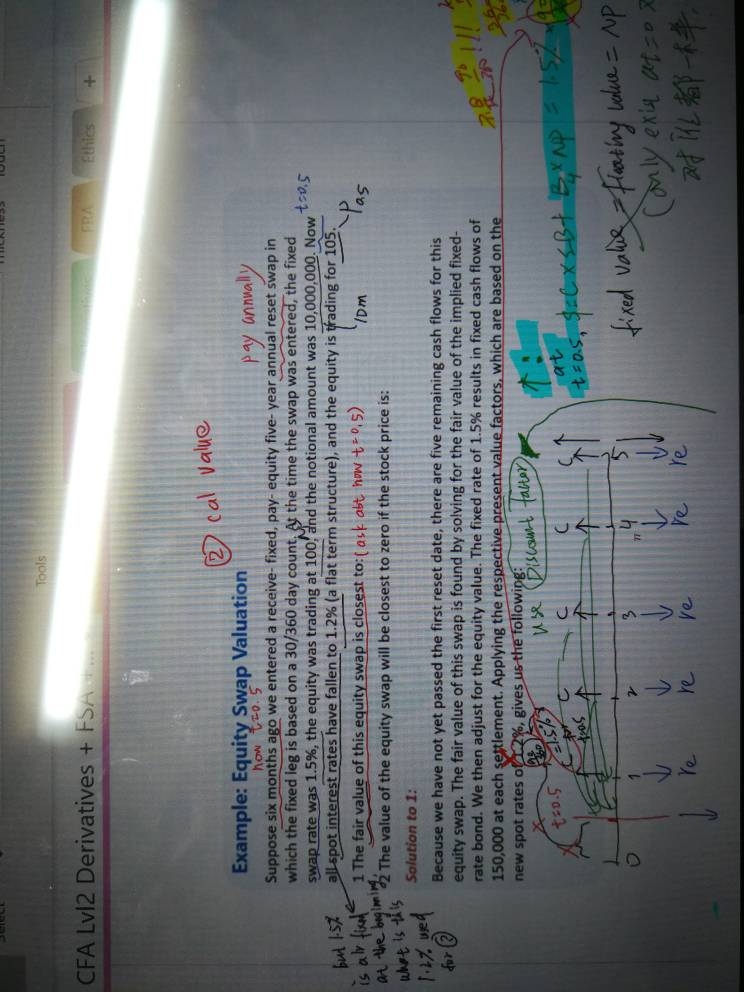 Tools
CFA Lvl2 Derivatives + FSA
FRA
Ethics
+
② cal value
Example: Equity Swap Valuation
pay annually
now t=0.5
Suppose six months ago we entered a receive- fixed, pay- equity five- year annual reset swap in
which the fixed leg is based on a 30/360 day count. At the time the swap was entered, the fixed
swap rate was 1.5%, the equity was trading at 100, and the notional amount was 10,000,000. Now t=0.5
all spot interest rates have fallen to 1.2% (a flat term structure), and the equity is trading for 105.
10m
P0.5
1 The fair value of this equity swap is closest to: (ask abt now t=0.5)
2 The value of the equity swap will be closest to zero if the stock price is:
but 1.5%
is alr fixed
at the beginning,
what is this
1.2% used
for ②
Solution to 1:
Because we have not yet passed the first reset date, there are five remaining cash flows for this
equity swap. The fair value of this swap is found by solving for the fair value of the implied fixed-
rate bond. We then adjust for the equity value. The fixed rate of 1.5% results in fixed cash flows of
150,000 at each settlement. Applying the respective present value factors, which are based on the
new spot rates of 1.2%, gives us the following:
use Discount factor
t=0.5
C C C C
0 1 2 3 4 5
re re re re re
↑:
at
t=0.5,
NP = 1.5%
fixed value = floating value = NP
(only
对 都一样